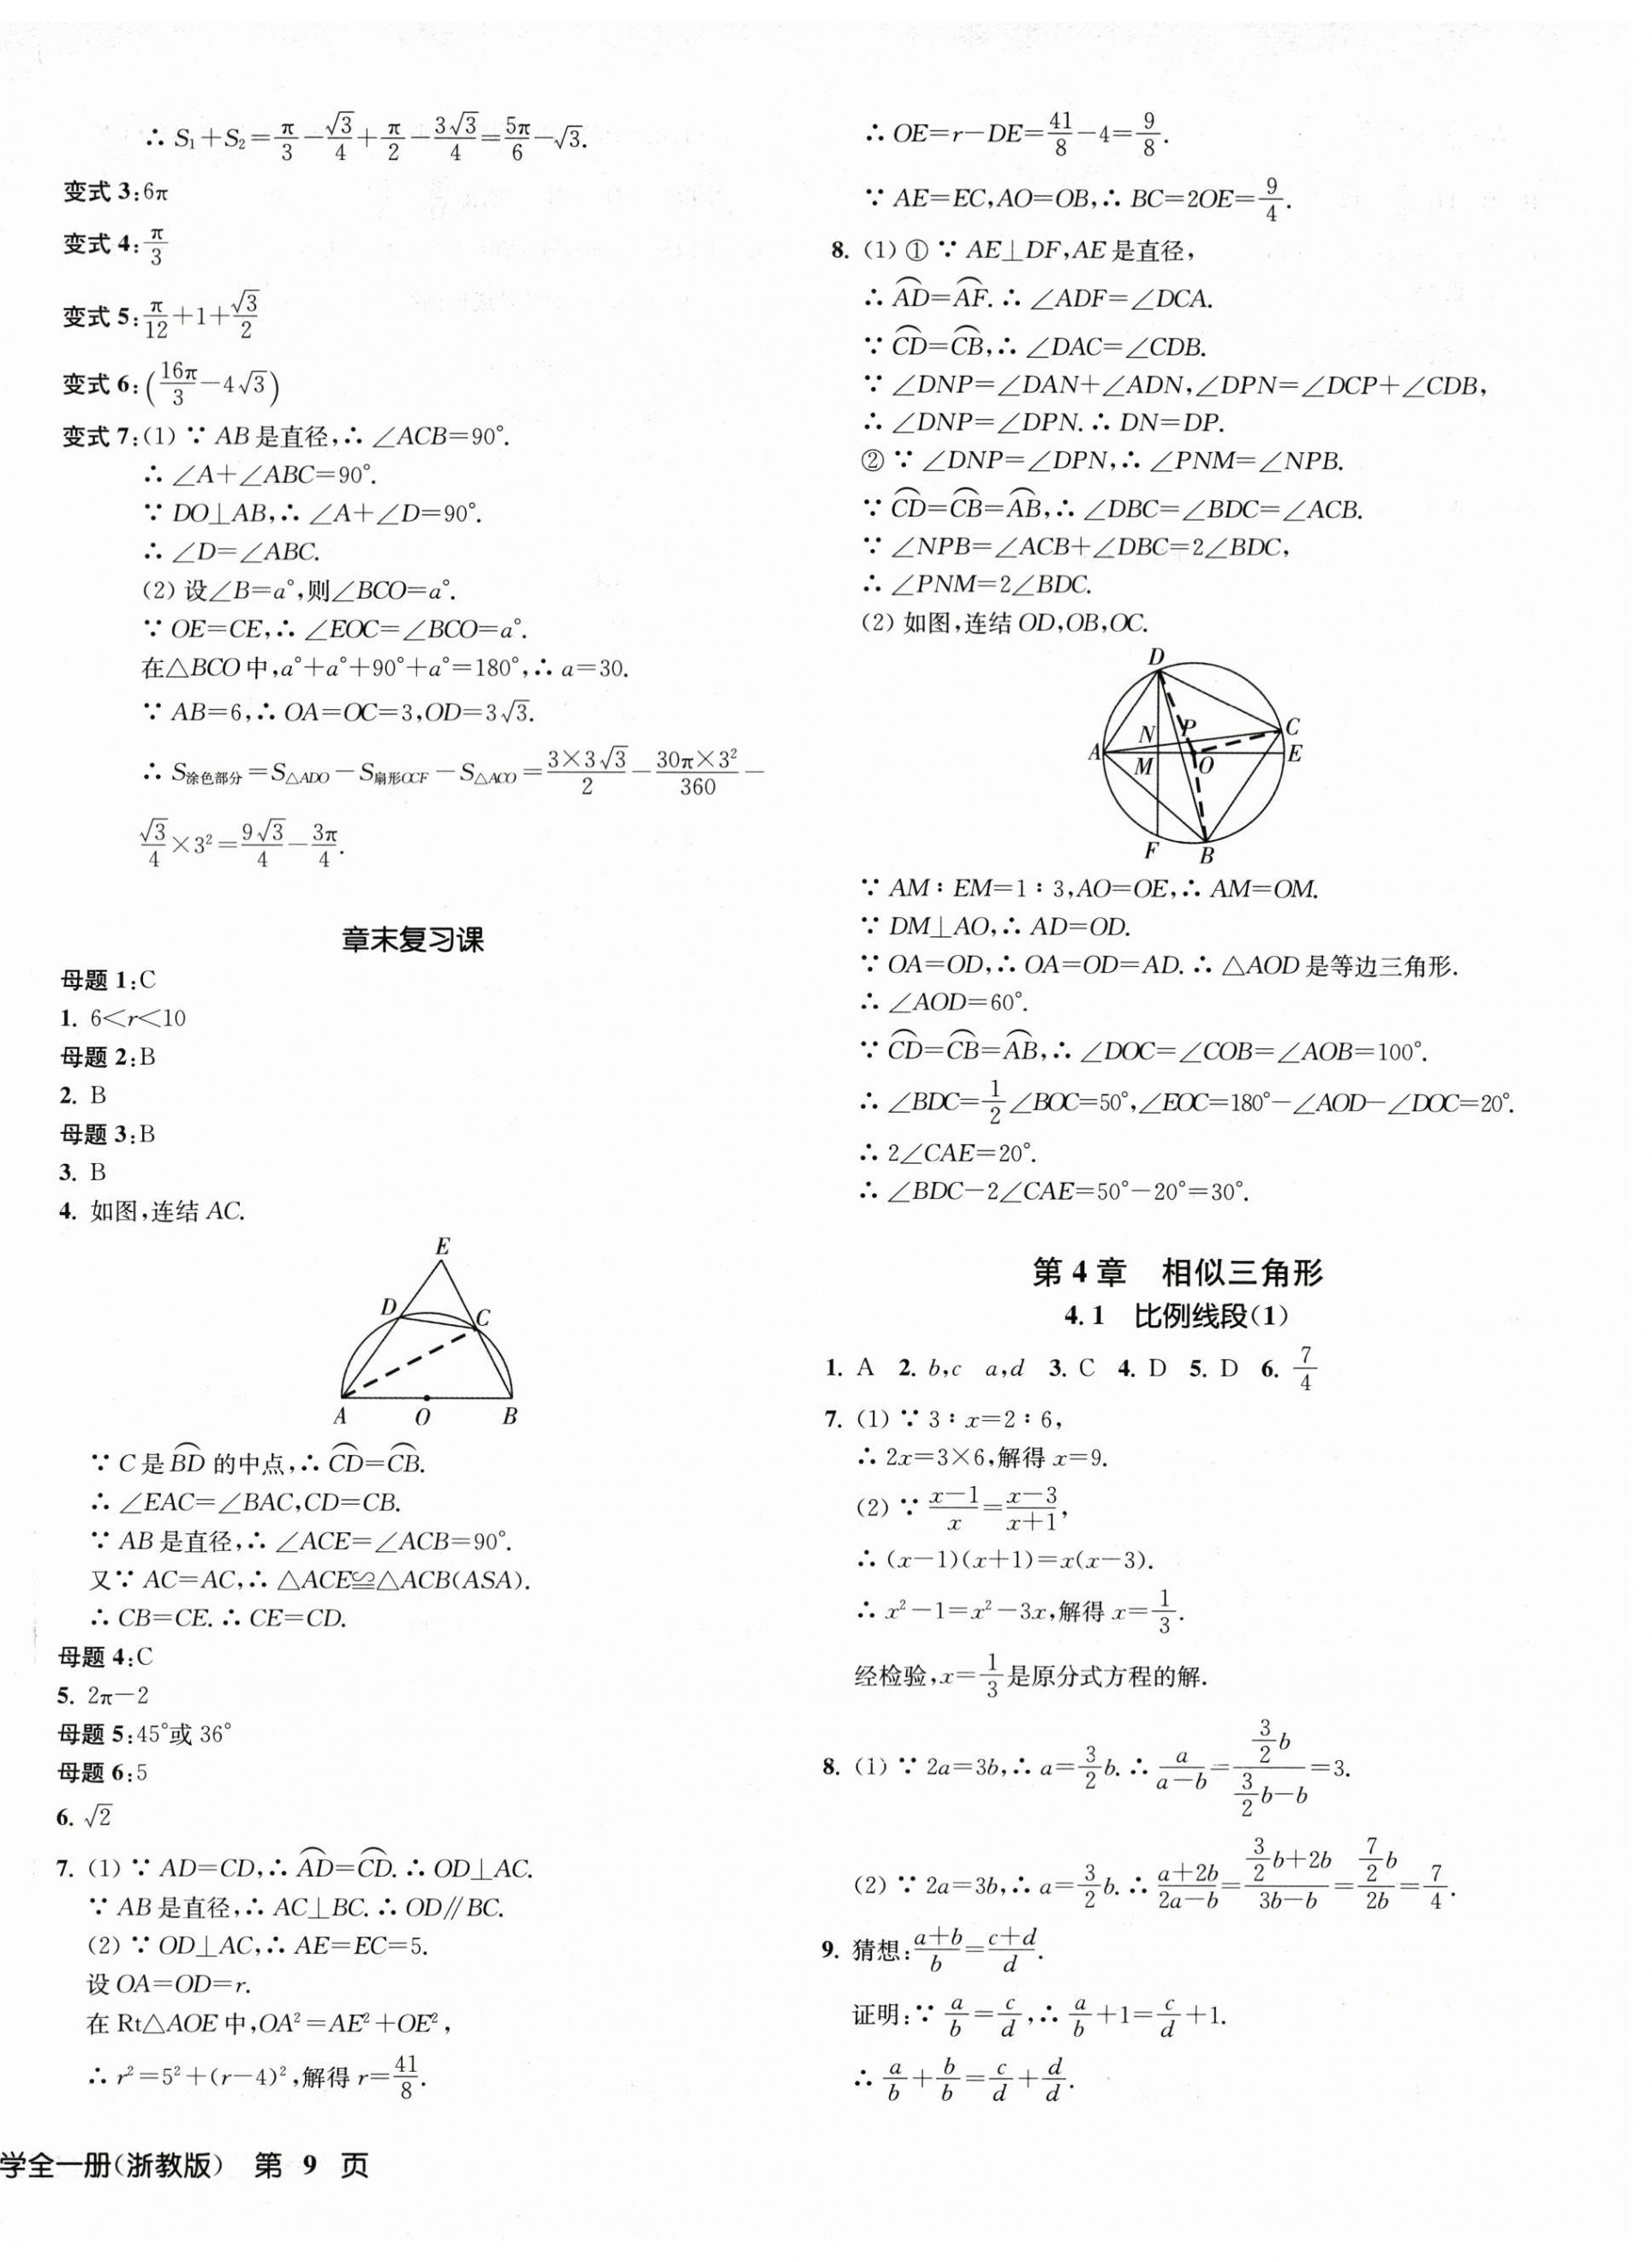 ∴ S₁+S₂=π/3−√3/4+π/2−3√3/4=5π/6−√3.
变式 3:6π
变式 4:π/3
变式 5:π/12+1+√3/2
变式 6:(16π/3−4√3)
变式 7:(1) ∵ AB 是直径,∴ ∠ACB=90°.
∴ ∠A+∠ABC=90°.
∵ DO⊥AB,∴ ∠A+∠D=90°.
∴ ∠D=∠ABC.
(2) 设∠B=a°,则∠BCO=a°.
∵ OE=CE,∴ ∠EOC=∠BCO=a°.
在△BCO 中,a°+a°+90°+a°=180°,∴ a=30.
∵ AB=6,∴ OA=OC=3,OD=3√3.
∴ S涂色部分=S△ADO−S扇形OCF−S△ACO=(3×3√3)/2−(30π×3²)/360−
√3/4×3²=9√3/4−3π/4.
章末复习课
母题 1:C
1. 6<r<10
母题 2:B
2. B
母题 3:B
3. B
4. 如图,连结 AC.
E
D
C
A O B
∵ C 是B͡D 的中点,∴ C͡D=C͡B.
∴ ∠EAC=∠BAC,CD=CB.
∵ AB 是直径,∴ ∠ACE=∠ACB=90°.
又∵ AC=AC,∴ △ACE≌△ACB(ASA).
∴ CB=CE. ∴ CE=CD.
母题 4:C
5. 2π−2
母题 5:45°或 36°
母题 6:5
6. √2
7. (1) ∵ AD=CD,∴ A͡D=C͡D. ∴ OD⊥AC.
∵ AB 是直径,∴ AC⊥BC. ∴ OD∥BC.
(2) ∵ OD⊥AC,∴ AE=EC=5.
设 OA=OD=r.
在 Rt△AOE 中,OA²=AE²+OE²,
∴ r²=5²+(r−4)²,解得 r=41/8.
∴ OE=r−DE=41/8−4=9/8.
∵ AE=EC,AO=OB,∴ BC=2OE=9/4.
8. (1) ① ∵ AE⊥DF,AE 是直径,
∴ A͡D=A͡F. ∴ ∠ADF=∠DCA.
∵ C͡D=C͡B,∴ ∠DAC=∠CDB.
∵ ∠DNP=∠DAN+∠ADN,∠DPN=∠DCP+∠CDB,
∴ ∠DNP=∠DPN. ∴ DN=DP.
② ∵ ∠DNP=∠DPN,∴ ∠PNM=∠NPB.
∵ C͡D=C͡B=A͡B,∴ ∠DBC=∠BDC=∠ACB.
∵ ∠NPB=∠ACB+∠DBC=2∠BDC,
∴ ∠PNM=2∠BDC.
(2) 如图,连结 OD,OB,OC.
D
N P C
A M O E
F B
∵ AM∶EM=1∶3,AO=OE,∴ AM=OM.
∵ DM⊥AO,∴ AD=OD.
∵ OA=OD,∴ OA=OD=AD. ∴ △AOD 是等边三角形.
∴ ∠AOD=60°.
∵ C͡D=C͡B=A͡B,∴ ∠DOC=∠COB=∠AOB=100°.
∴ ∠BDC=1/2∠BOC=50°,∠EOC=180°−∠AOD−∠DOC=20°.
∴ 2∠CAE=20°.
∴ ∠BDC−2∠CAE=50°−20°=30°.
第 4 章 相似三角形
4.1 比例线段(1)
1. A 2. b,c a,d 3. C 4. D 5. D 6. 7/4
7. (1) ∵ 3∶x=2∶6,
∴ 2x=3×6,解得 x=9.
(2) ∵ (x−1)/x=(x−3)/(x+1),
∴ (x−1)(x+1)=x(x−3).
∴ x²−1=x²−3x,解得 x=1/3.
经检验,x=1/3是原分式方程的解.
8. (1) ∵ 2a=3b,∴ a=3/2b. ∴ a/(a−b)=(3/2b)/(3/2b−b)=3.
(2) ∵ 2a=3b,∴ a=3/2b. ∴ (a+2b)/(2a−b)=(3/2b+2b)/(3b−b)=(7/2b)/(2b)=7/4.
9. 猜想:(a+b)/b=(c+d)/d.
证明:∵ a/b=c/d,∴ a/b+1=c/d+1.
∴ a/b+b/b=c/d+d/d.
学全一册(浙教版) 第 9 页